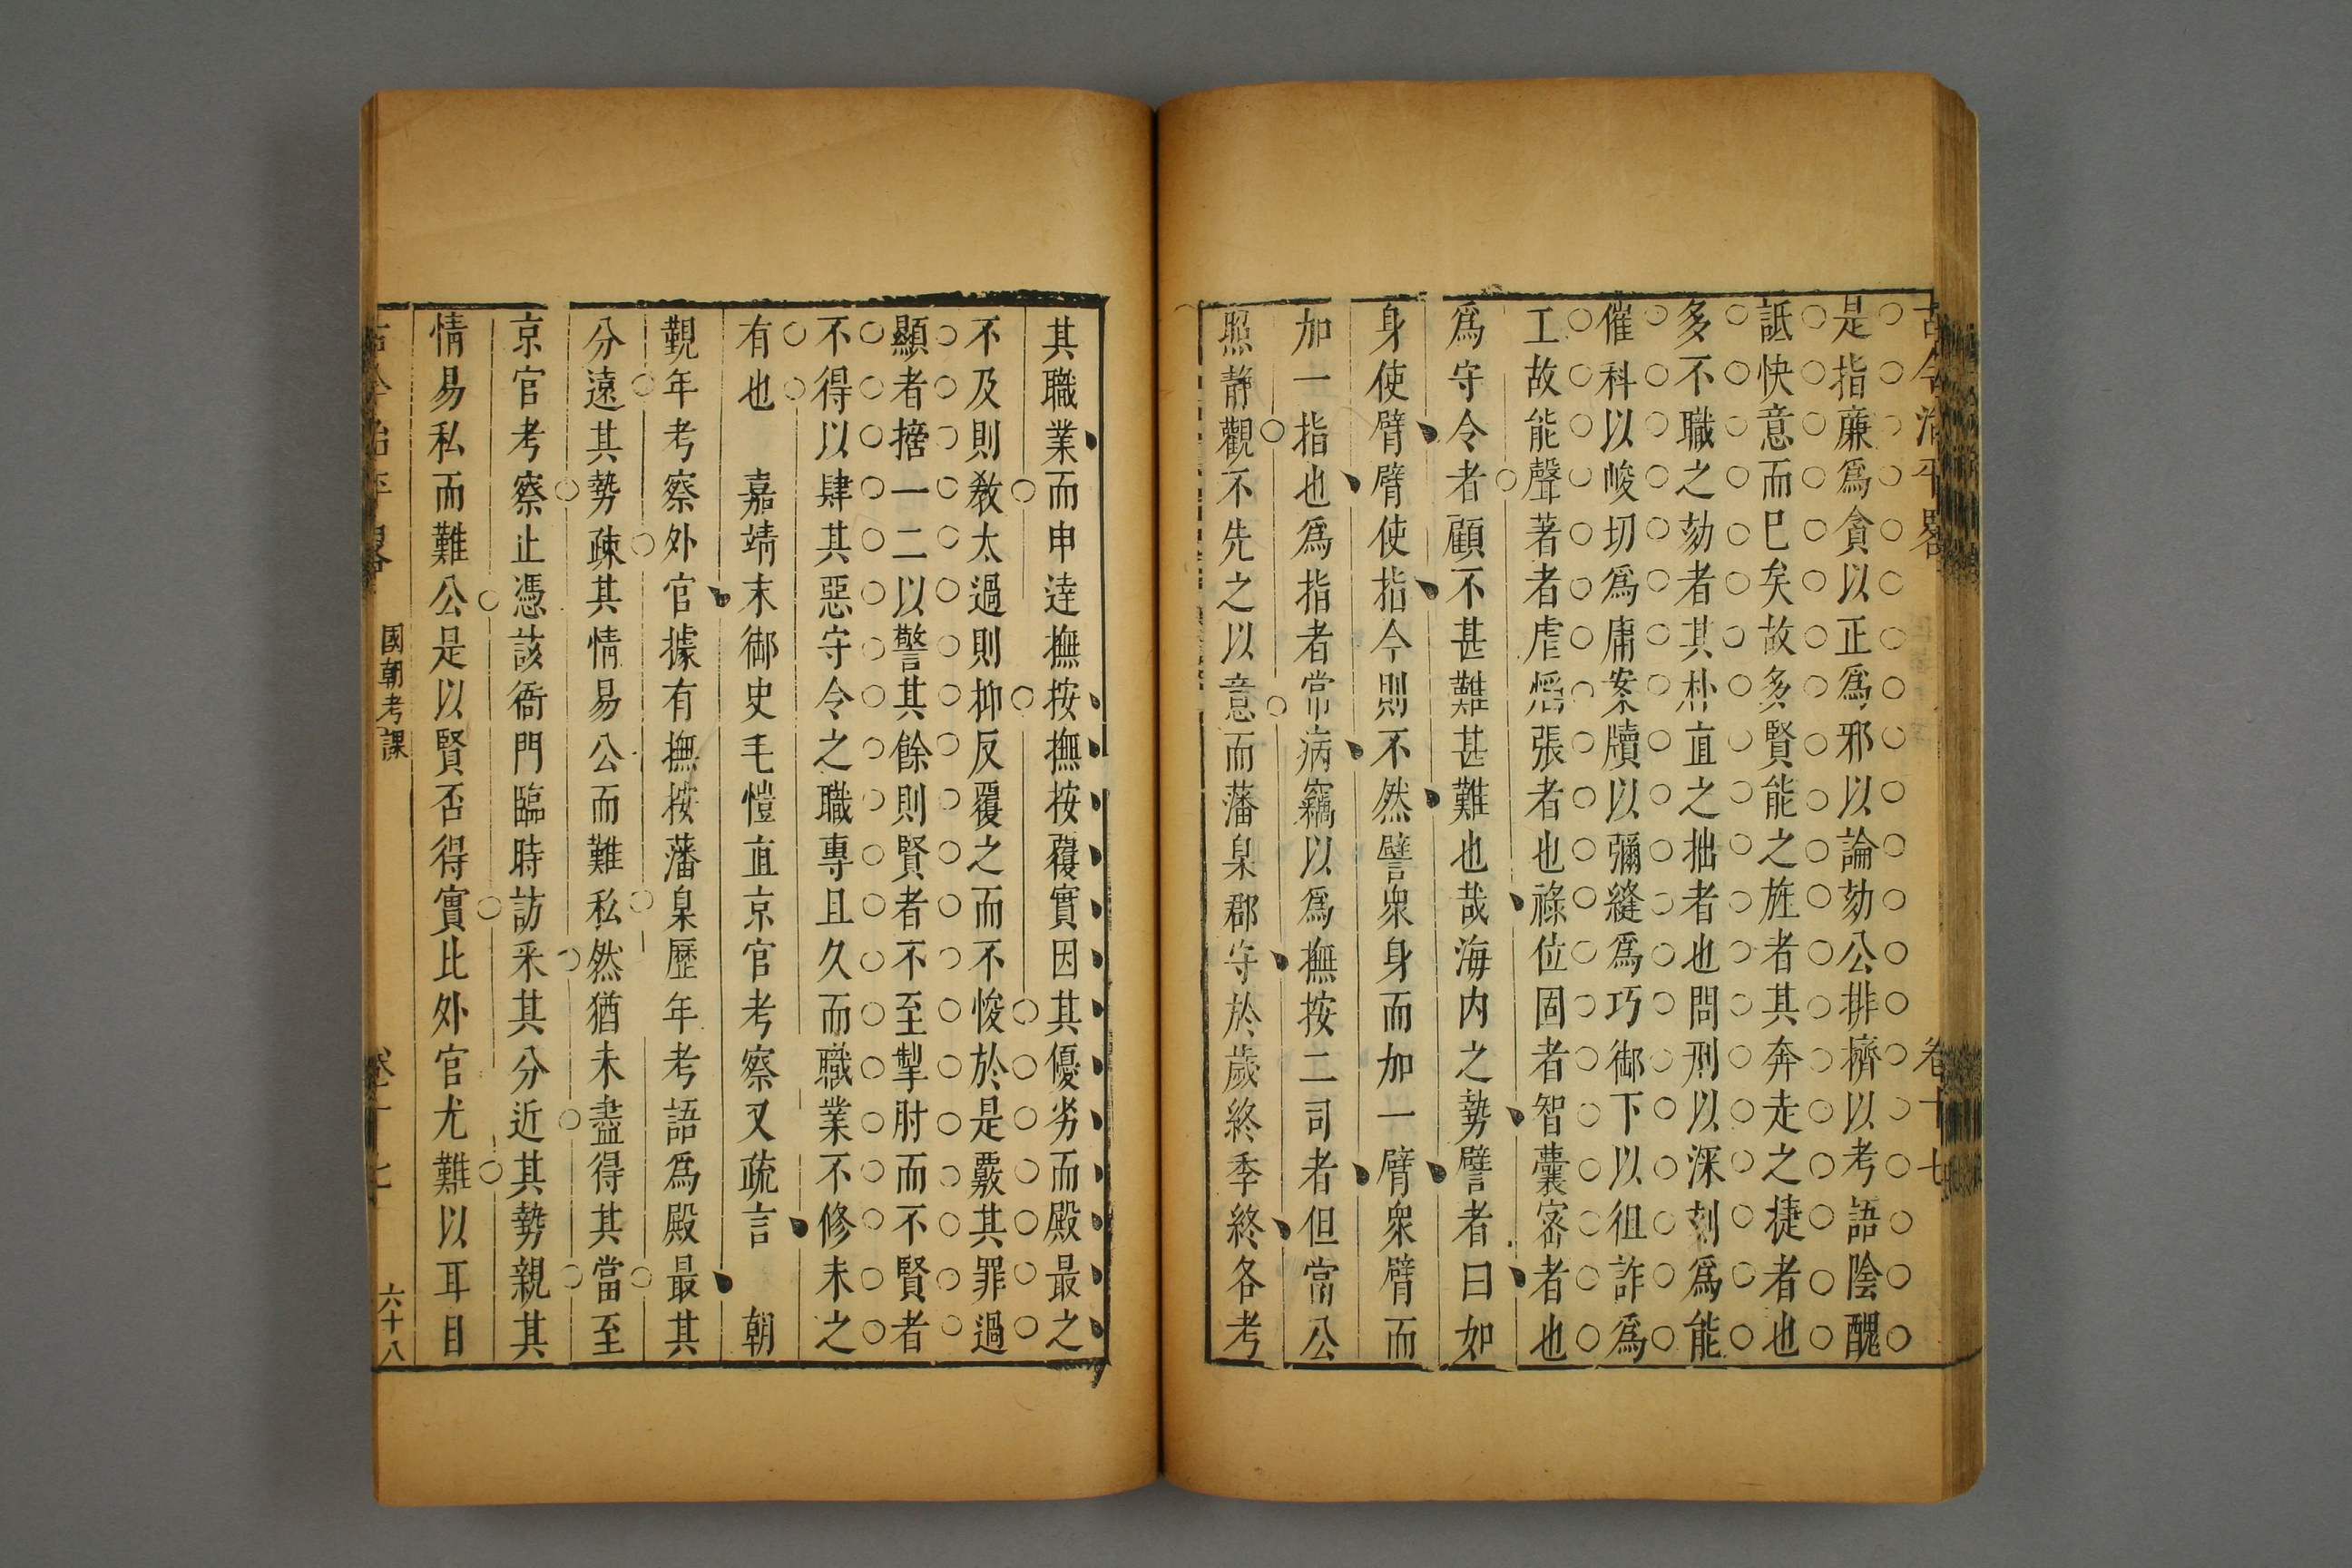 古今治平畧 卷十七
是指廉爲貪以正爲邪以論劾公排擠以考語陰醜
詆快意而已矣故多賢能之旌者其奔走之捷者也
多不職之劾者其朴直之拙者也問刑以深刻爲能
催科以峻切爲庸案牘以彌縫爲巧御下以狙詐爲
工故能聲著者虐熖張者也祿位固者智囊宻者也
爲守令者顧不甚難甚難也哉海内之勢譬者曰如
身使臂臂使指今則不然譬衆身而加一臂衆臂而
加一指也爲指者常病竊以爲撫按二司者但當公
照静觀不先之以意而藩臬郡守於歲終季終各考
其職業而申逹撫按撫按覆實因其優劣而殿最之
不及則敎太過則抑反覆之而不悛於是覈其罪過
顯者揞一二以警其餘則賢者不至掣肘而不賢者
不得以肆其惡守令之職專且久而職業不修未之
有也 嘉靖末御史毛愷直京官考察又疏言 朝
覲年考察外官據有撫按藩臬歷年考語爲殿最其
分遠其勢疎其情易公而難私然猶未盡得其當至
京官考察止憑該衙門臨時訪采其分近其勢親其
情易私而難公是以賢否得實比外官尤難以耳目
古今治平畧 國朝考課 卷十七 六十八